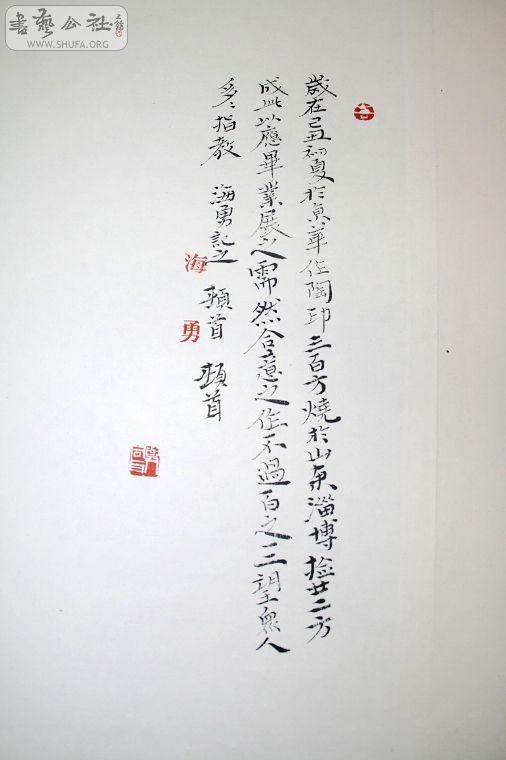 書藝公社
WWW.SHUFA.ORG
歲在己丑初夏於京華作陶印三百方燒於山東淄博撿廿二方
成此以應畢業展之需然合意之作不過百之二三望衆人
多多指教 海勇記之 頓首 頓首
海勇